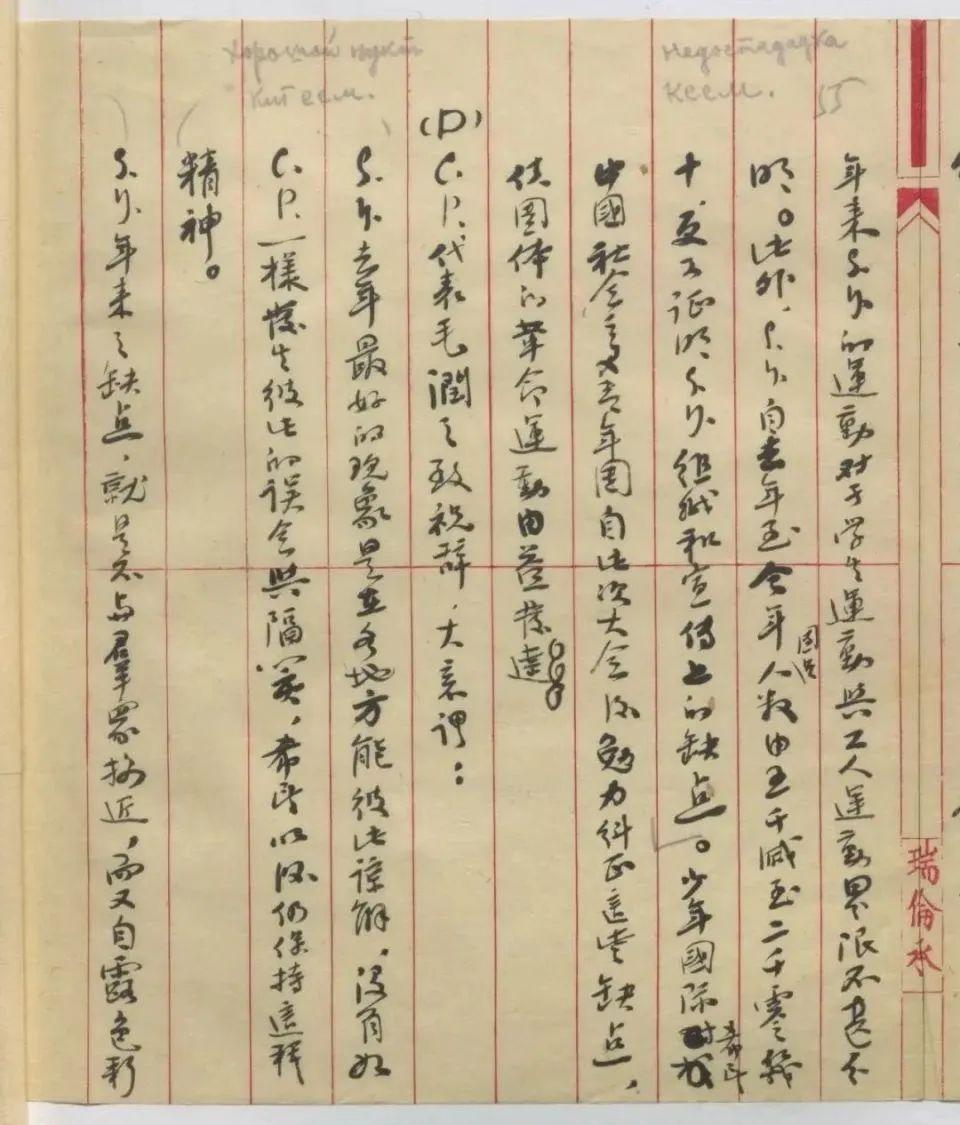 Хороший пункт
Кит ссм.
Недостададка
КССМ.
55
年来S.Y.的運動对于学生運動與工人運動界限不甚分
明。此外,S.Y.自去年至今年人数由五千减至二千零幾
團员
十,更可证明S.Y.组织和宣傳上的缺点。少年國际
希望
中國社会主义青年團自此次大会后勉力纠正這些缺点,
使團体的革命運動由茲發達
(D)
C.P.代表毛潤之致祝辞,大意谓:
S.Y.去年最好的现象是在各地方能彼此諒解,没有如
C.P.一樣發生彼此的误会與隔阂,希望以后仍保持這種
精神。
S.Y.年来之缺点,就是不与羣眾接近,而又自露色彩
瑞倫承